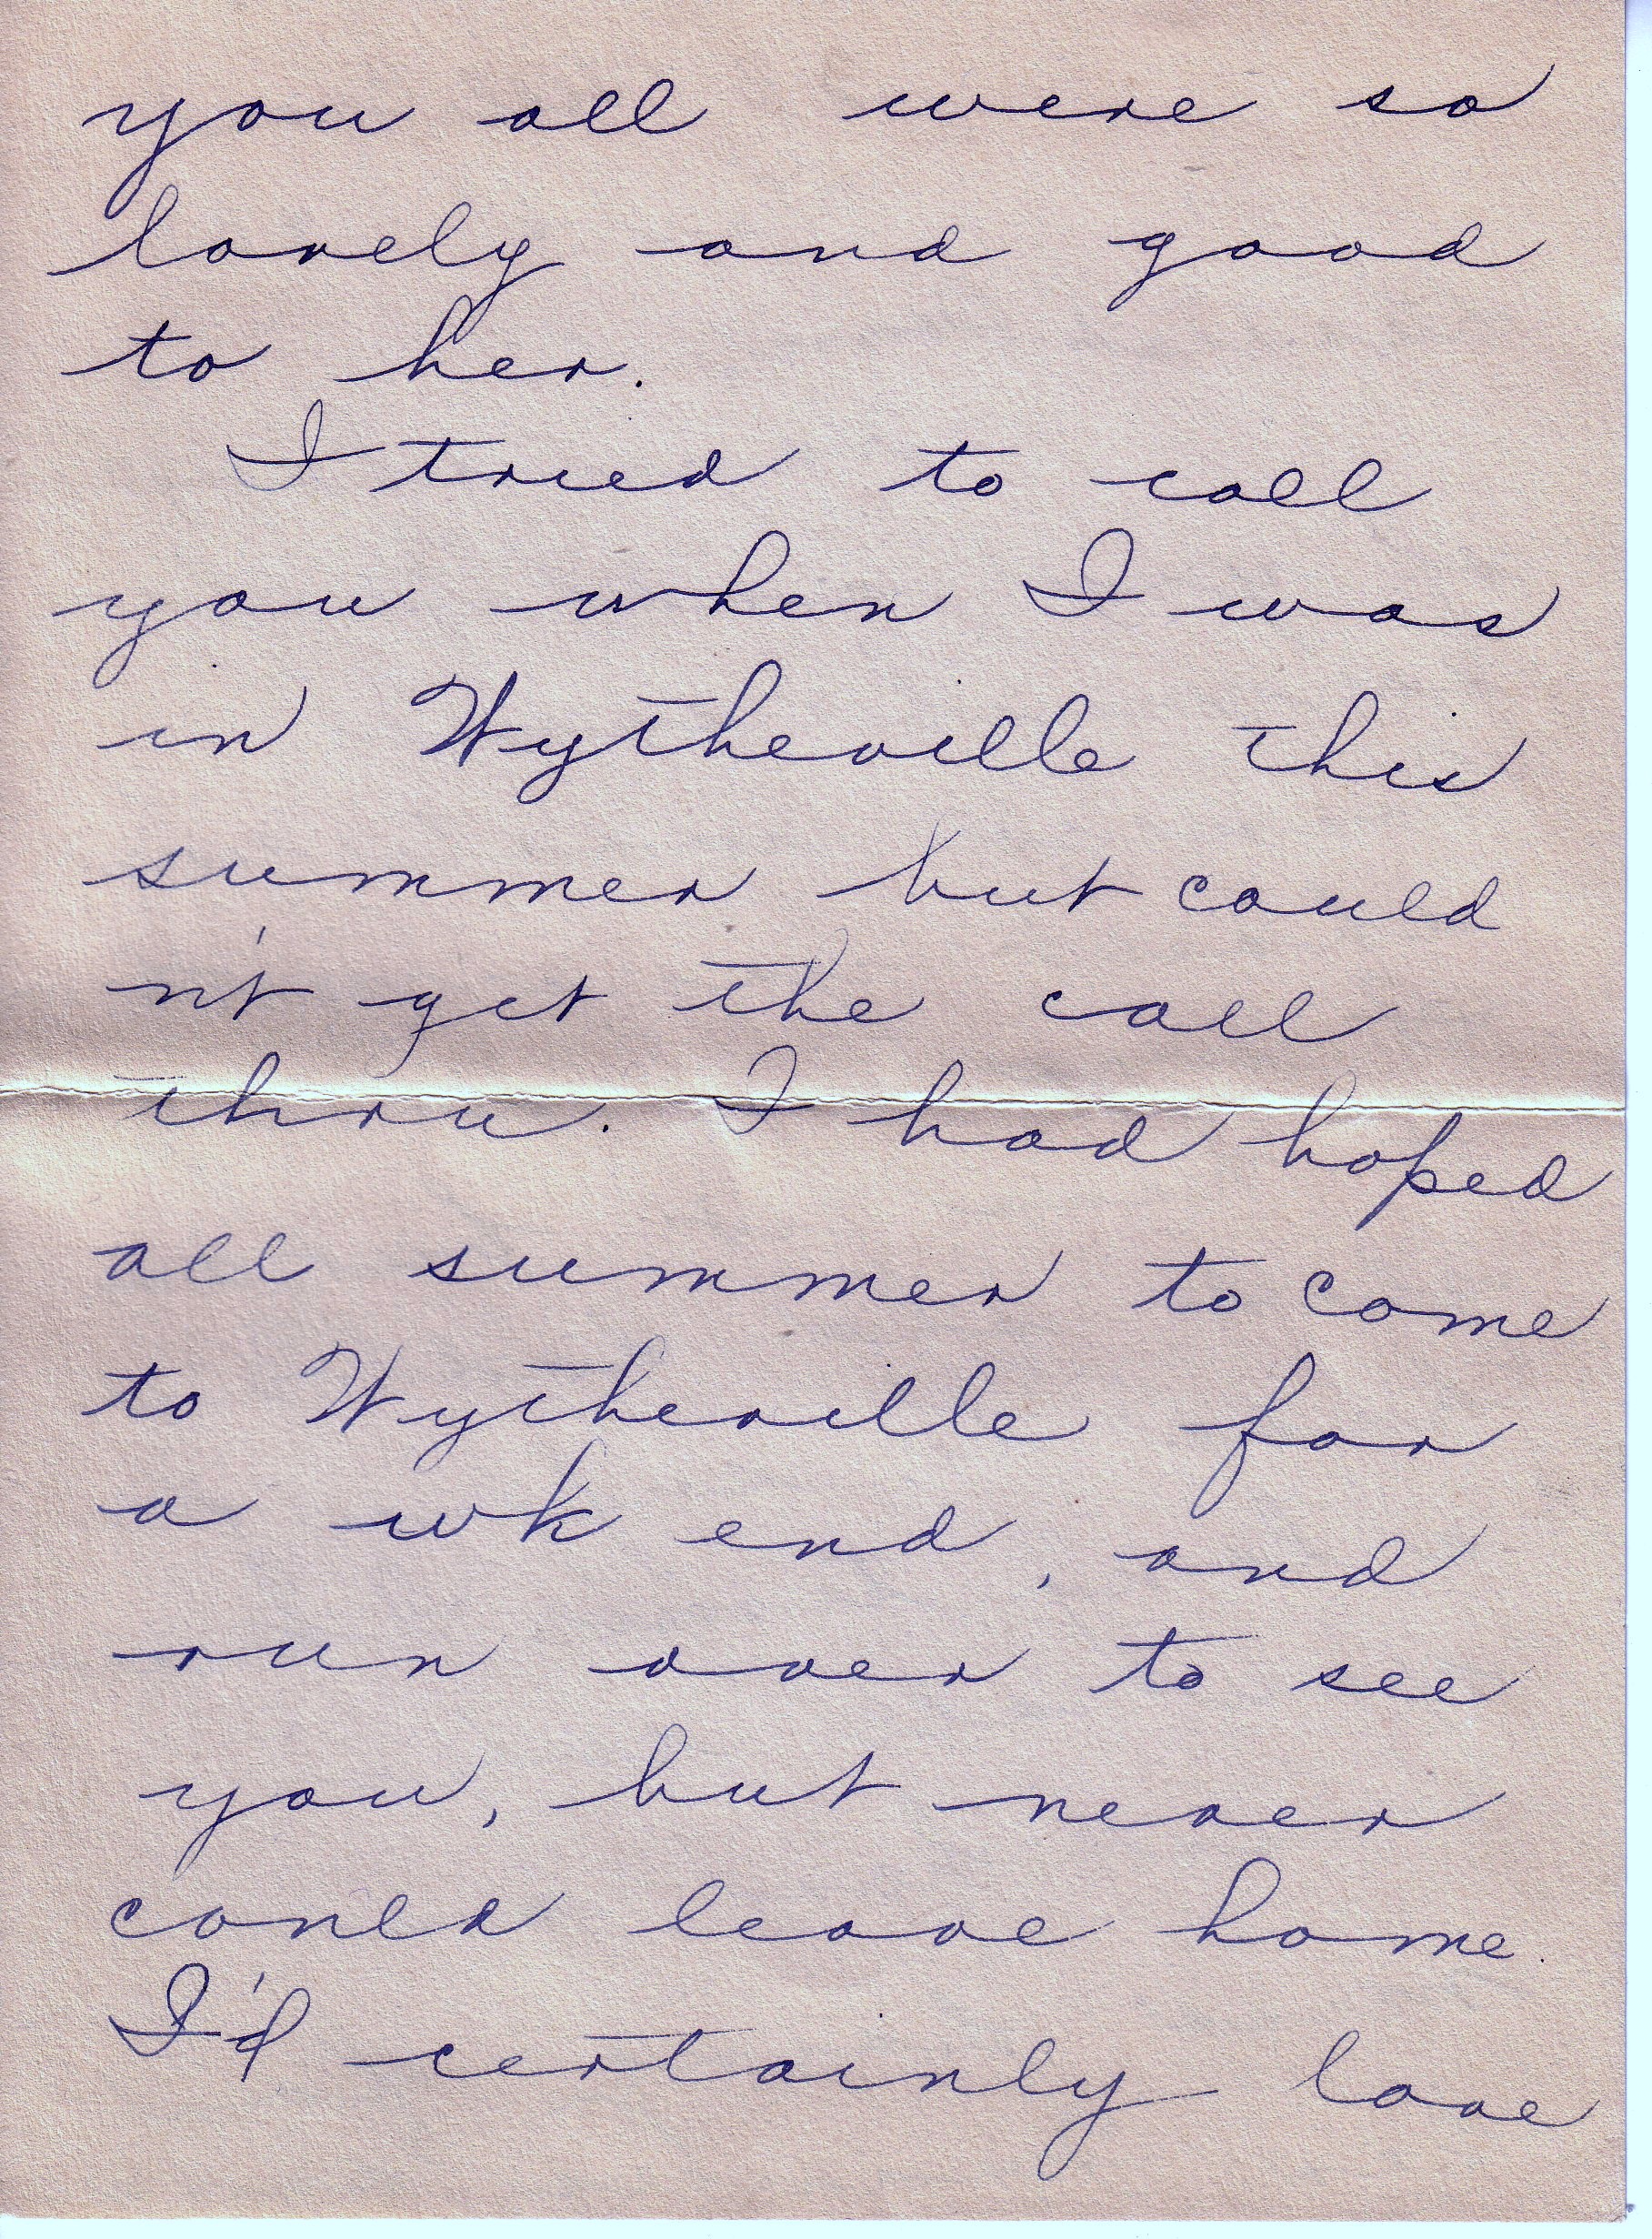 you all were so
lovely and good
to her.
I tried to call
you when I was
in Wytheville this
summer but could
n't get the call
thru. I had hoped
all summer to come
to Wytheville for
a wk end, and
run over to see
you, but never
could leave home.
I'd certainly love